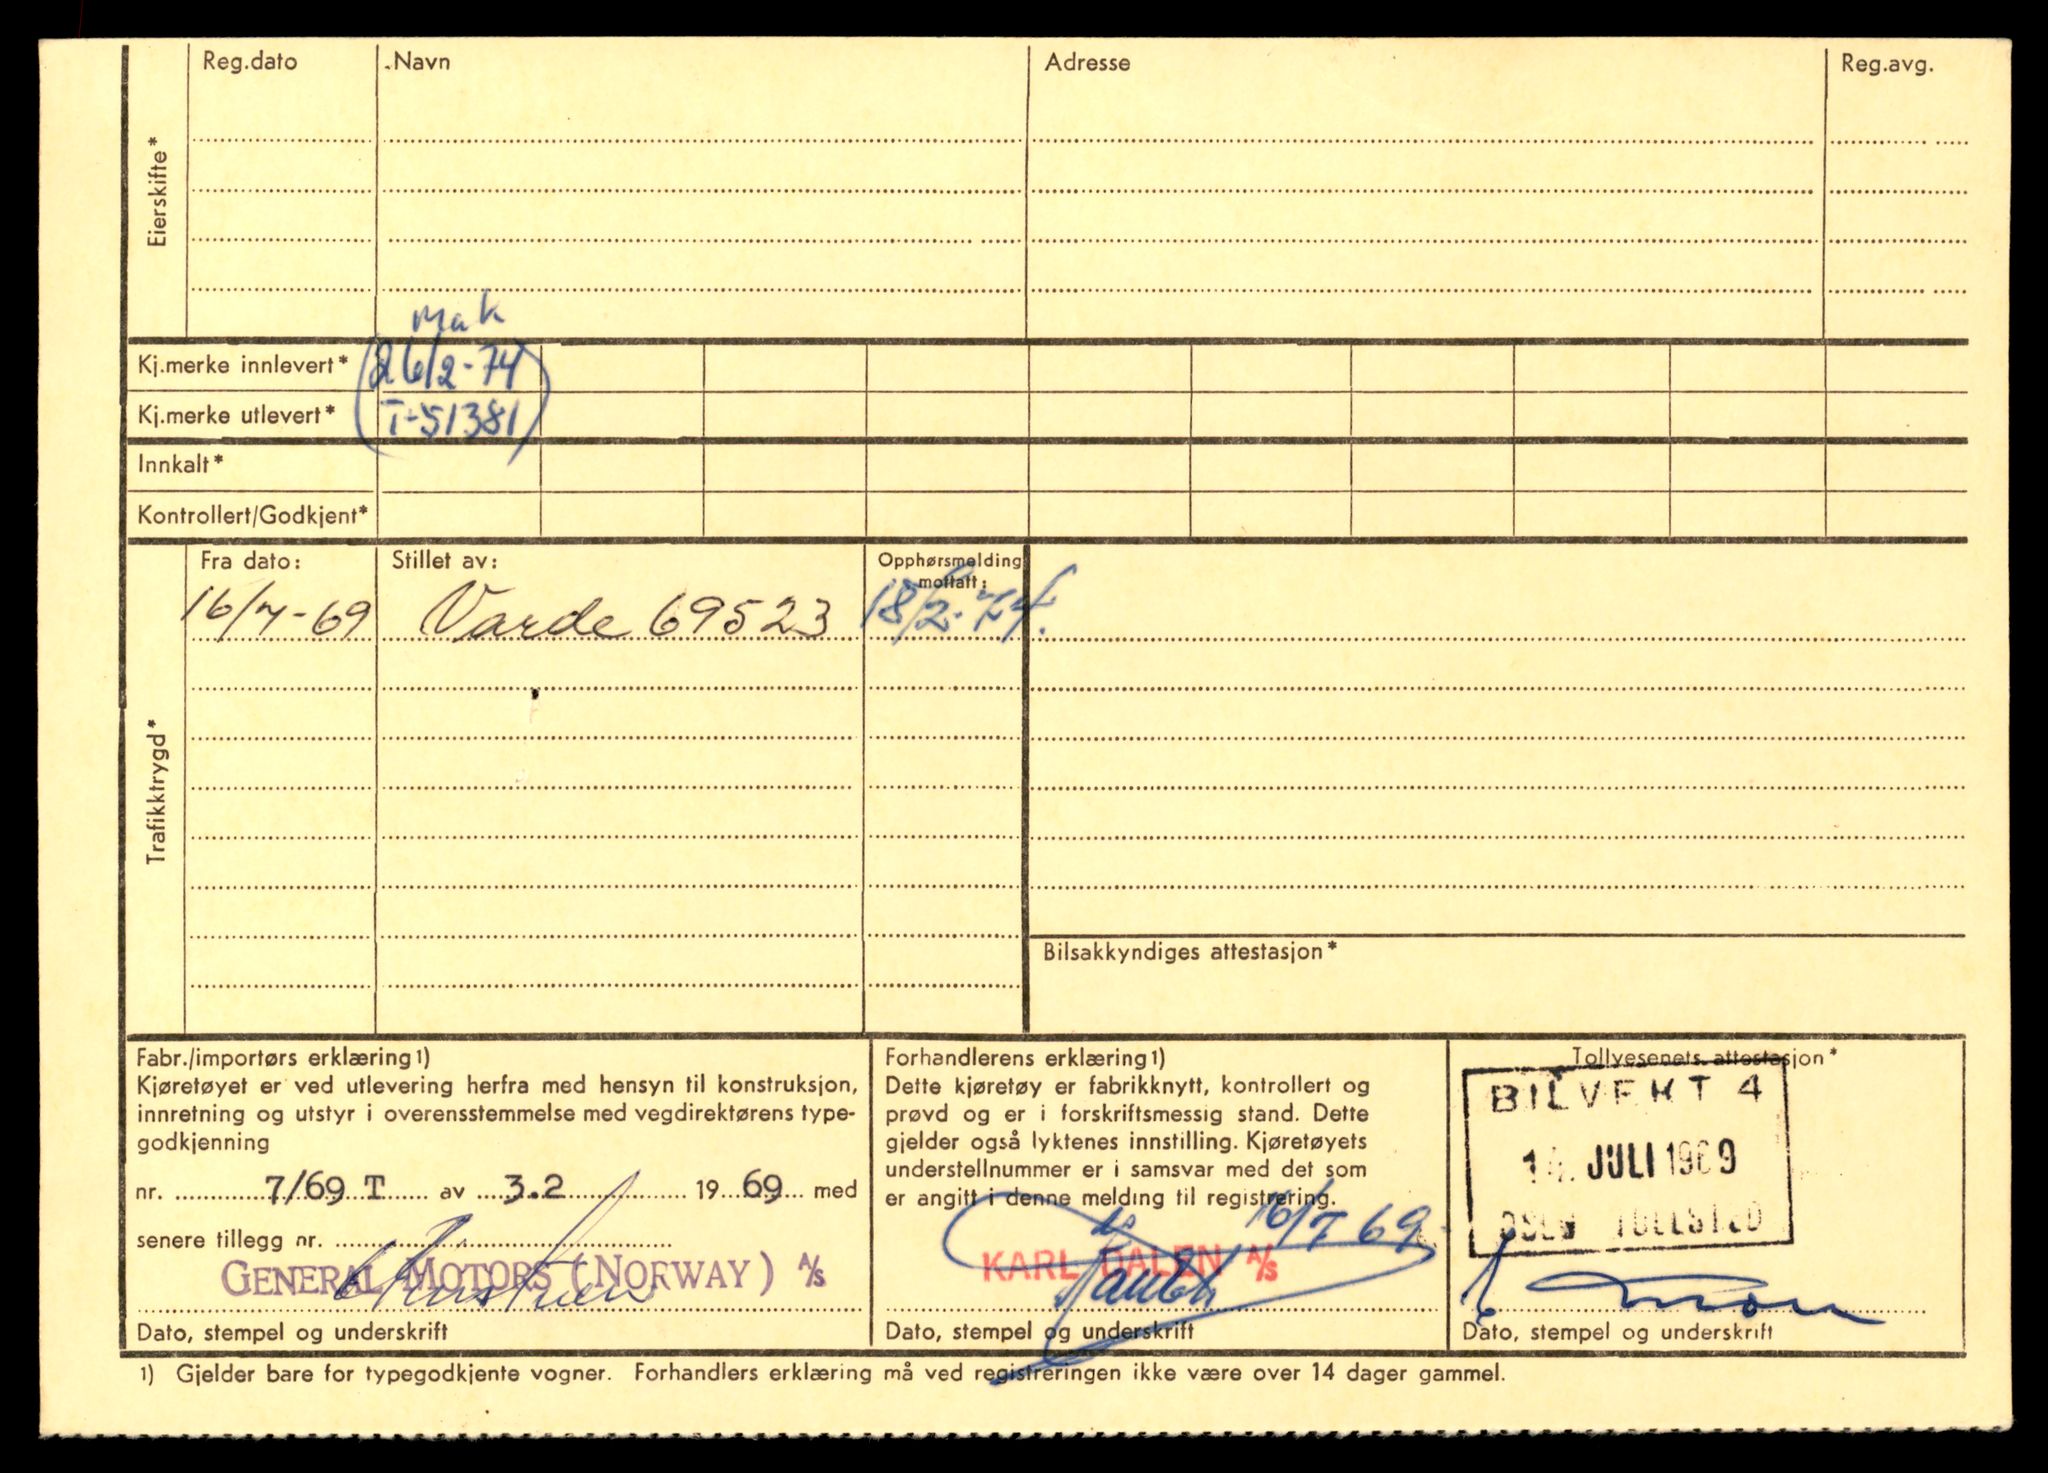 Reg.dato Navn Adresse Reg.avg.
Eierskifte*
Mak
Kj.merke innlevert* 26/2-74
Kj.merke utlevert* T-51381
Innkalt*
Kontrollert/Godkjent*
Trafikktrygd*
Fra dato: Stillet av: Opphørsmelding mottatt:
16/7-69 Varde 69523 18/2-74.
Bilsakkyndiges attestasjon*
Fabr./importørs erklæring1)
Kjøretøyet er ved utlevering herfra med hensyn til konstruksjon,
innretning og utstyr i overensstemmelse med vegdirektørens type-
godkjenning
nr. 7/69 T av 3.2 19 69 med
senere tillegg nr.
GENERAL MOTORS (NORWAY) A/S
Dato, stempel og underskrift
Forhandlerens erklæring1)
Dette kjøretøy er fabrikknytt, kontrollert og
prøvd og er i forskriftsmessig stand. Dette
gjelder også lyktenes innstilling. Kjøretøyets
understellnummer er i samsvar med det som
er angitt i denne melding til registrering.
16/7 69
KARL DALEN A/S
Dato, stempel og underskrift
Tollvesenets attestasjon*
BILVEKT 4
14. JULI 1969
OSLO TOLLSTED
Dato, stempel og underskrift
1) Gjelder bare for typegodkjente vogner. Forhandlers erklæring må ved registreringen ikke være over 14 dager gammel.